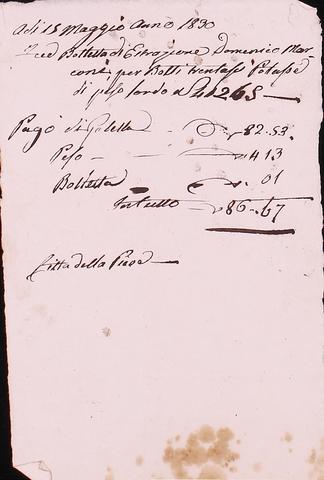 Adi 15 Maggio Anno 1830
ced Bolletta di Estrazione Domenico Mar=
coni, per Botti trentasei Potasse
di peso lordo 41265
Pago di Gabella 82.53.
Peso 4 13
Bolletta . 01
In tutto 86.67
Citta della Pieve